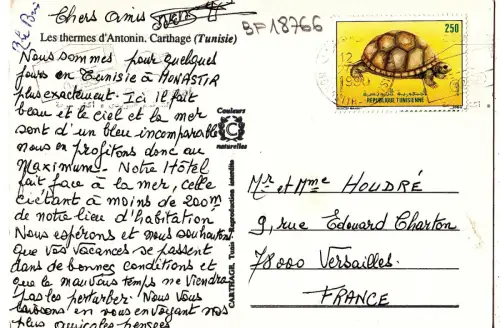 Chers amis
BF18766
Les thermes d'Antonin. Carthage (Tunisie)
Nous sommes pour quelques
jours en Tunisie à MONASTIR
plus exactement. Ici il fait
beau et le ciel et la mer
sont d'un bleu incomparable
nous en profitons donc au
Maximum. Notre Hôtel
fait face à la mer, celle
ci étant à moins de 200m
de notre lieu d'habitation
Nous espérons et nous souhaitons
que vos vacances se passent
dans de bonnes conditions et
que le mauvais temps ne viendra
pas les perturber. Nous vous
laissons en vous envoyant nos
plus amicales pensées
Couleurs
C
naturelles
CARTHAGE, Tunis - Reproduction interdite
250
12
REPUBLIQUE TUNISIENNE
Mr et Mme HOUDRÉ
9, rue Édouard Charton
78000 Versailles.
FRANCE